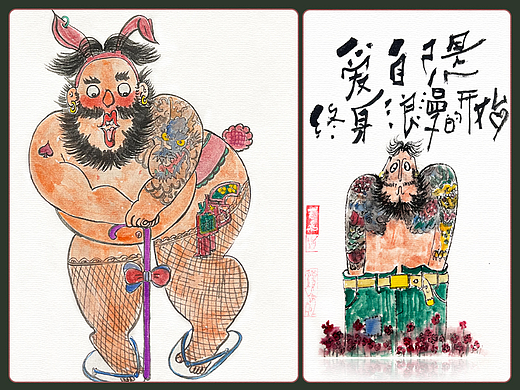 爱自己是
终身浪漫的开始